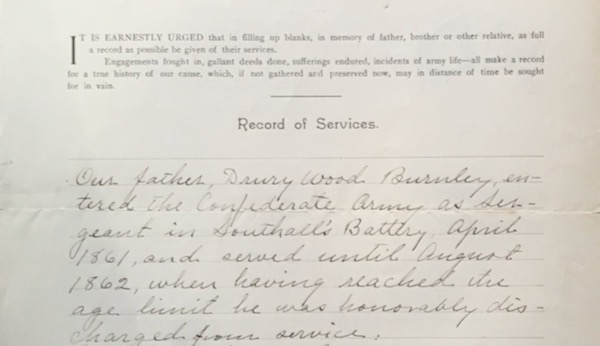 IT IS EARNESTLY URGED that in filling up blanks, in memory of father, brother or other relative, as full
a record as possible be given of their services.
Engagements fought in, gallant deeds done, sufferings endured, incidents of army life—all make a record
for a true history of our cause, which, if not gathered and preserved now, may in distance of time be sought
for in vain.
Record of Services.
Our father, Drury Wood Burnley, en-
tered the Confederate Army as Ser-
geant in Southall's Battery, April
1861, and served until August
1862, when having reached the
age limit he was honorably dis-
charged from service.